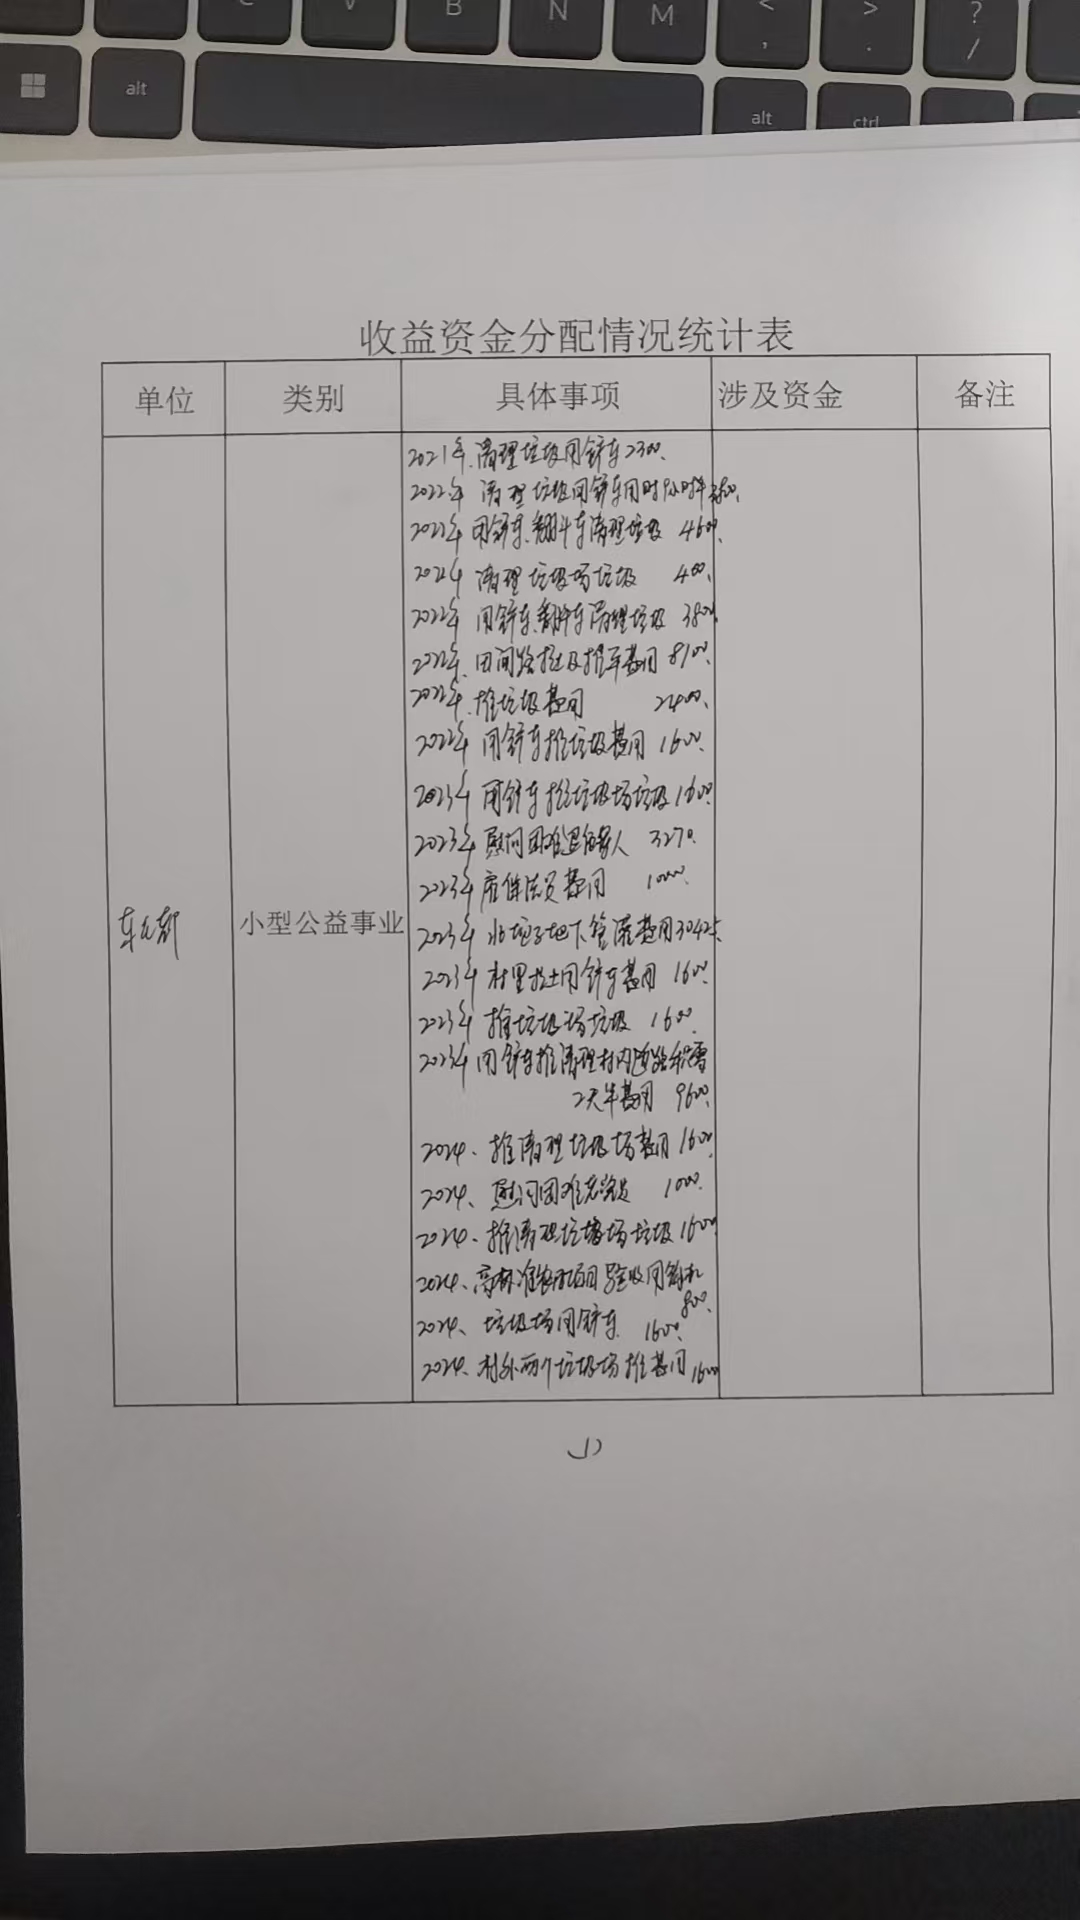 C V B N M < , > . ? /
alt alt ctrl
收益资金分配情况统计表
单位 类别 具体事项 涉及资金 备注
小型公益事业
2021年.清理垃圾用铲车2300.
2022年 清理垃圾用铲车用时
2022年 用铲车、翻斗车清理垃圾 4600.
清理垃圾场垃圾 400.
2022年 用铲车、翻斗车清理垃圾 3800.
2022年. 田间路 费用 8100.
2022年. 推垃圾费用 2400.
2022年 用铲车推垃圾费用 1600.
2023年 用铲车推垃圾场垃圾 1600.
2023年 慰问困难 人 3270.
2023年 费用 1000.
2023年 地下管灌费用30425.
2023年 村里拉土用铲车费用 1600.
2023年 推垃圾场垃圾 1600.
2023年 用铲车推清理村内道路积雪
2天半费用 9600.
2024、推清理垃圾场费用 1600.
2024、慰问困难老党员 1000.
2024、推清理垃圾场垃圾 1600.
2024、高标准农田项目验收用钩机
800.
2024、垃圾场用铲车. 1600.
2024、村外两个垃圾场推费用 1600
(1)